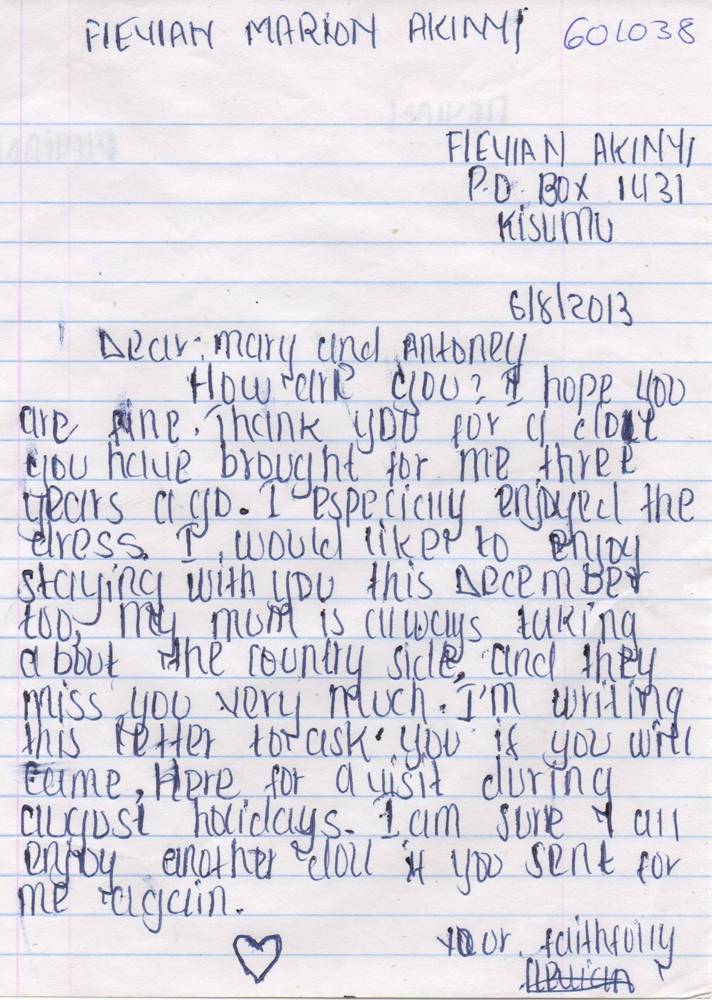 FlEVIAN MARION AKINYI 601038
FlEVIAN AKINYI
P.O. BOX 1431
KISUMU
6/8/2013
Dear. mary and Antoney
How are you? I hope you
are fine. Thank you for a
you have brought for me three
years ago. I especially enjoyed the
dress. I would like to enjoy
staying with you this December
too, My mum is always taking
about the country side, and they
miss you very much. I'm writing
this letter to ask you if you will
came, Here for a visit during
august holidays. I am sure I all
enjoy another doll if you sent for
me again.
your. faithfully
flevian